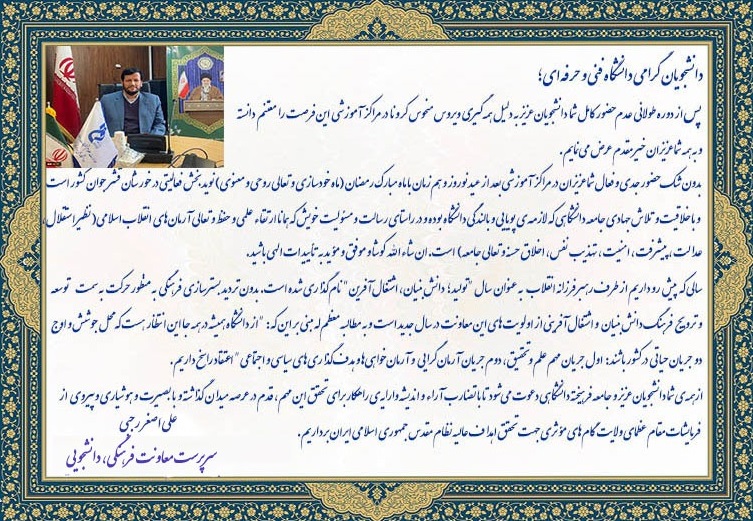 دانشجویان گرامی دانشگاه فنی و حرفه ای؛
پس از دوره طولانی عدم حضور کامل شما دانشجویان عزیز به دلیل همه گیری ویروس منحوس کرونا در مراکز آموزشی این فرصت را مغتنم دانسته
و به همه شما عزیزان خیر مقدم عرض می نمایم.
بدون شک حضور جدی و فعال شما عزیزان در مراکز آموزشی بعد از عید نوروز و هم زمان با ماه مبارک رمضان (ماه خودسازی و تعالی روحی و معنوی) نوید بخش فعالیتی در خور شان قشر جوان کشور است
و با خلاقیت و تلاش جهادی جامعه دانشگاهی که لازمه ی پویایی و بالندگی دانشگاه بوده و در راستای رسالت و مسئولیت خویش که همانا ارتقاء علمی و حفظ و تعالی آرمان های انقلاب اسلامی (نظیر استقلال،
عدالت، پیشرفت، امنیت، تهذیب نفس، اخلاق حسنه و تعالی جامعه) است. ان شاء الله کوشا و موفق و مؤید به تأییدات الهی باشید.
سالی که پیش رو داریم از طرف رهبر فرزانه انقلاب به عنوان سال "تولید؛ دانش بنیان، اشتغال آفرین" نام گذاری شده است. بدون تردید بسترسازی فرهنگی به منظور حرکت به سمت توسعه
و ترویج فرهنگ دانش بنیان و اشتغال آفرینی از اولویت های این معاونت در سال جدید است و به مطالبه معظم له مبنی بر این که: "از دانشگاه همیشه در همه جا این انتظار هست که محل جوشش و اوج
دو جریان حیاتی در کشور باشند: اول جریان مهم علم و تحقیق، دوم جریان آرمان گرایی و آرمان خواهی ها و هدف گذاری های سیاسی و اجتماعی" اعتقاد راسخ داریم.
از همه ی شما دانشجویان عزیز و جامعه فرهیخته دانشگاهی دعوت می شود تا با تضارب آراء و اندیشه و ارایه ی راهکار برای تحقق این مهم، قدم در عرصه میدان گذاشته و با بصیرت و هوشیاری و پیروی از
فرمایشات مقام عظمای ولایت گام های مؤثری جهت تحقق اهداف عالیه نظام مقدس جمهوری اسلامی ایران برداریم.
علی اصغر رجبی
سرپرست معاونت فرهنگی، دانشجویی